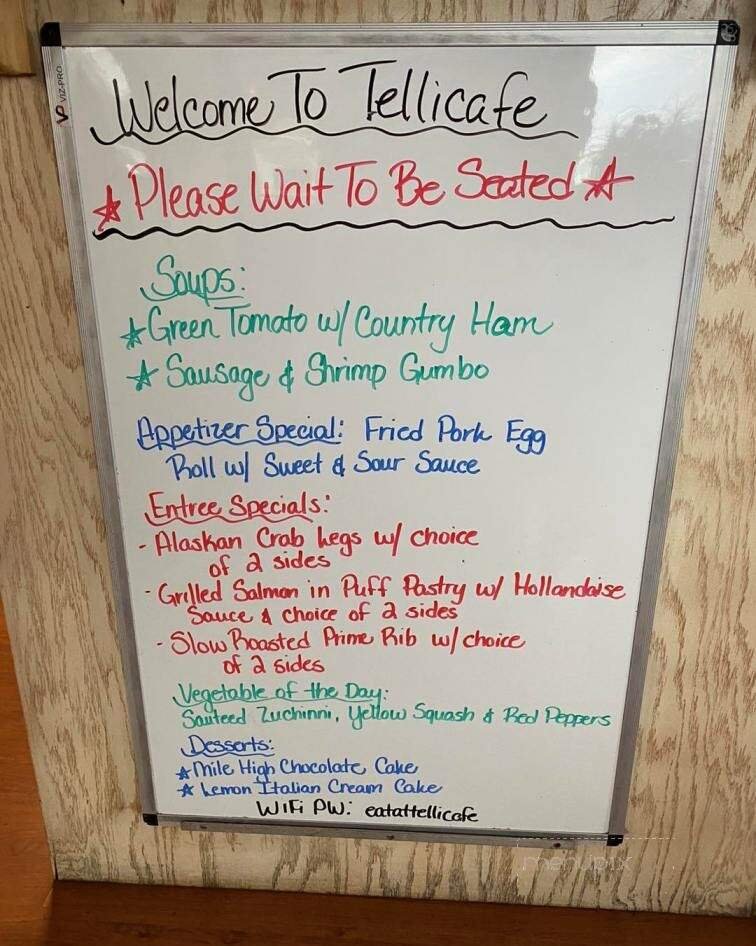 VIZ-PRO
Welcome To Tellicafe
☆ Please Wait To Be Seated ☆
Soups:
☆ Green Tomato w/ Country Ham
☆ Sausage & Shrimp Gumbo
Appetizer Special: Fried Pork Egg
Roll w/ Sweet & Sour Sauce
Entree Specials:
- Alaskan Crab Legs w/ choice
of 2 sides
- Grilled Salmon in Puff Pastry w/ Hollandaise
Sauce & choice of 2 sides
- Slow Roasted Prime Rib w/ choice
of 2 sides
Vegetable of the Day:
Sauteed Zuchinni, Yellow Squash & Red Peppers
Desserts:
☆ Mile High Chocolate Cake
☆ Lemon Italian Cream Cake
WiFi PW: eatattellicafe
menupix